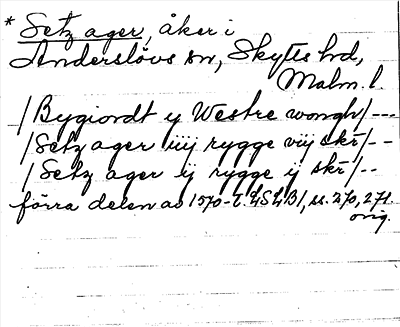 * Setz ager, åker i
Anderslövs sn, Skytts hd,
Malm. l.
/Bygiordt y Westre wongh/---
/Setz ager iiij rygge viij skr̄/--
/Setz ager ij rygge ij skr̄/--
förra delen av 1570-t. LSLB1, s. 270, 271.
orig.